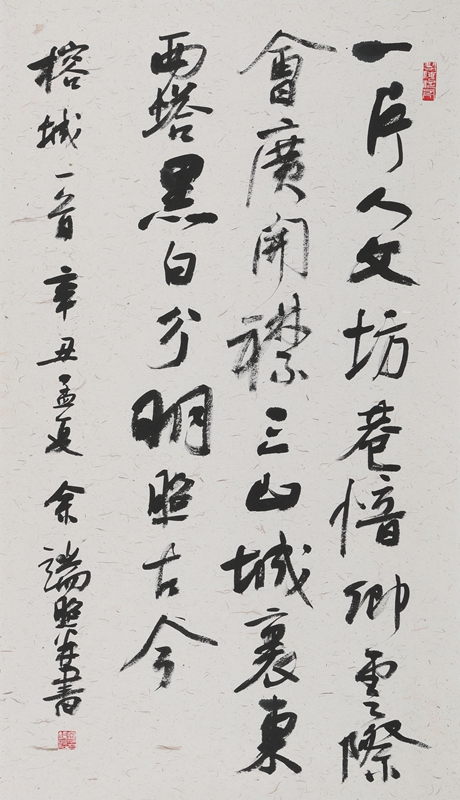 一片人文坊巷愔卿云際
會廣開襟三山城裏東
西塔黑白分明照古今
榕城一首辛丑孟夏余端照並書